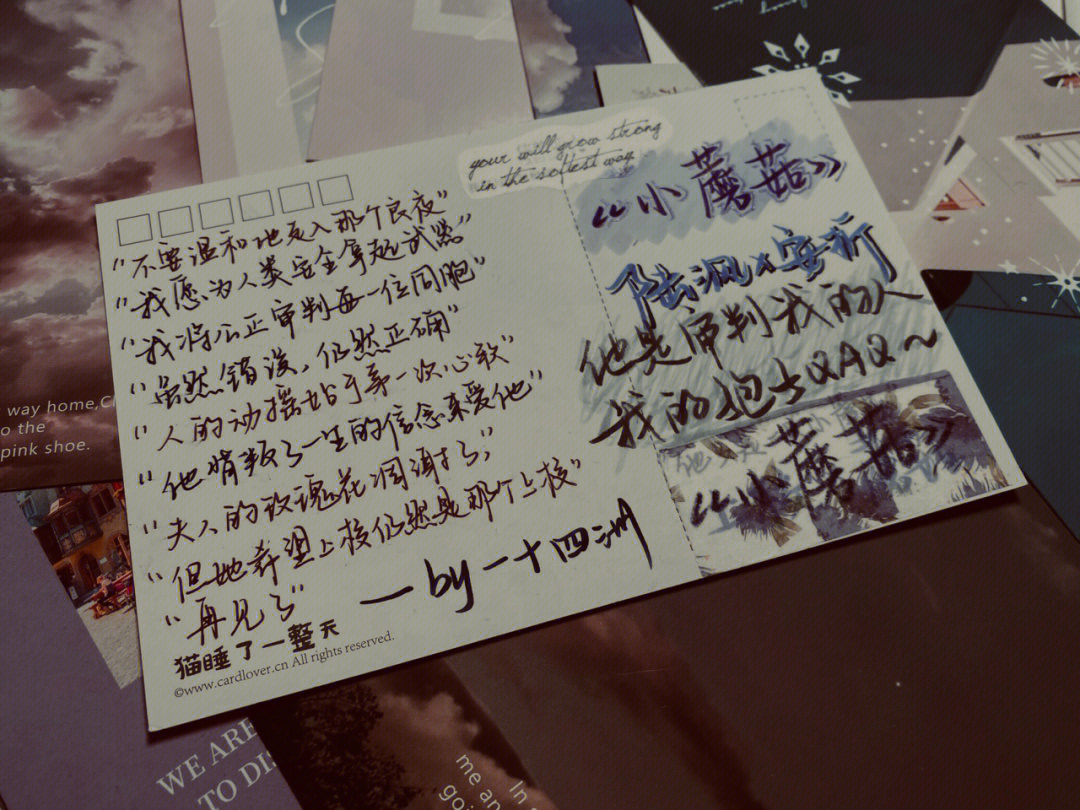 your will grow strong
in the softest way
"不要温和地走入那个良夜"
"我愿为人类安全拿起武器"
"我将公正审判每一位同胞"
"虽然错误,仍然正确"
"人的动摇始于第一次心软"
"他背叛了一生的信念来爱他"
"夫人的玫瑰花凋谢了"
"但她希望上校仍然是那个上校"
"再见了"
—by 一十四洲
猫睡了一整天
©www.cardlover.cn All rights reserved.
《小蘑菇》
陆沨x安折
他是审判我的人
我的抱士QAQ~
《小蘑菇》
way home,
o the
pink shoe.
WE ARE
TO DIS
me an